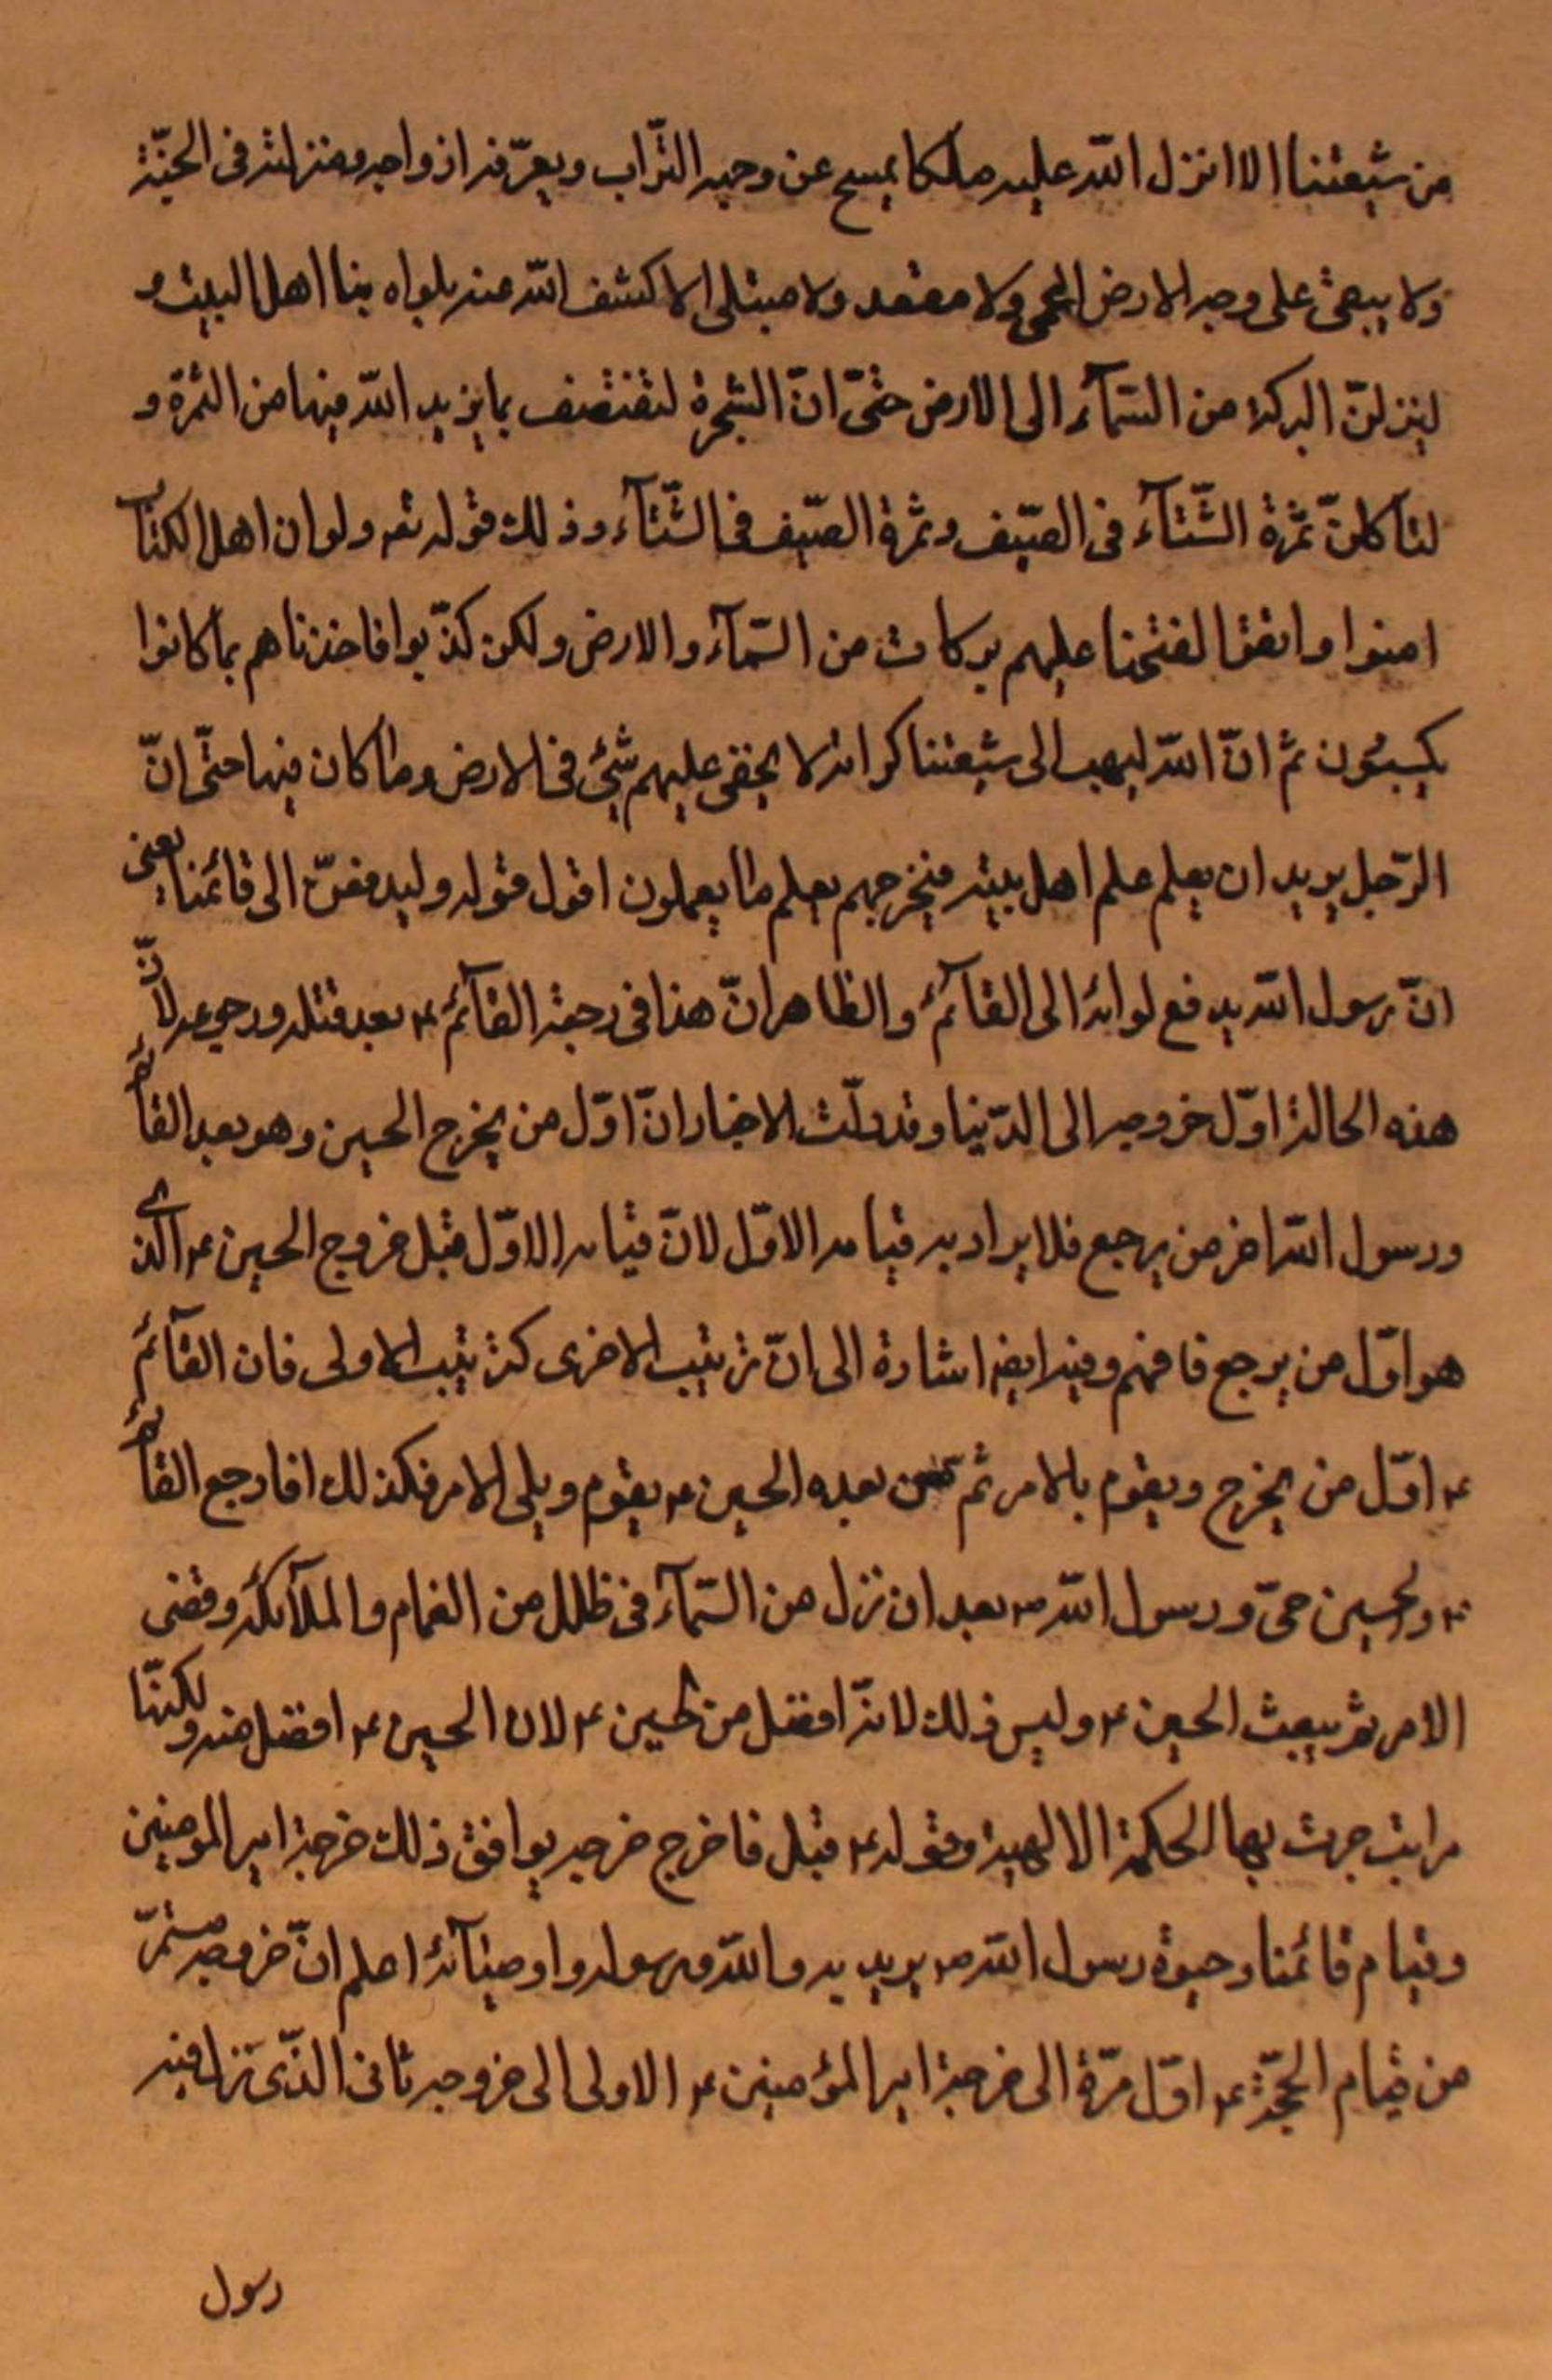 من شيعتنا الا انزل الله عليه ملكا يمسح عن وجهه التّراب ويعرّفه ازواجه ومنزلته في الجنّة
ولا يبقى على وجه الارض اعمى ولا مقعد ولا مبتلى الا كشف الله عنه بلواه بنا اهل البيت و
لينزلنّ البركة من السّمآء الى الارض حتّى انّ الشجرة لتقتصف بما يزيد الله فيها من الثمرة و
لتاكلنّ ثمرة الشّتآء في الصّيف وثمرة الصّيف في الشّتآء وذلك قوله تعه ولو ان اهل الكتاب
امنوا واتقوا لفتحنا عليهم بركات من السّمآء والارض ولكن كذّبوا فاخذناهم بما كانوا
يكسبون ثم انّ الله ليهب الى شيعتنا كرامة لا يخفى عليهم شئ في الارض وما كان فيها حتّى انّ
الرّجل يريد ان يعلم علم اهل بيته فيخرجهم بعلم ما يعملون اقول قوله وليدفعنّ الى قائمنا يعنى
انّ رسول الله يدفع لوائه الى القآئم والظاهر انّ هذا في رجعة القآئم ع بعد قتله ورجوعه لانّ
هذه الحالة اوّل خروجه الى الدّنيا وقد دلّت الاخبار انّ اوّل من يخرج الحسين وهو بعد القائم
ورسول الله اخر من يرجع فلا يراد به قيامه الاوّل لانّ قيامه الاوّل قبل خروج الحسين ع الذى
هو اوّل من يرجع فافهم وفيه ايضا اشارة الى انّ ترتيب الاخرى كترتيب الاولى فان القآئم
ع اوّل من يخرج ويقوم بالامر ثم من بعده الحسين ع يقوم ويلى الامر فكذلك اذا رجع القائم
ع والحسين حىّ ورسول الله ص بعد ان نزل من السّمآء في ظلل من الغمام والملآئكة وقضى
الامر ثم يبعث الحسين ع وليس ذلك لانّه افضل من الحسين ع لان الحسين ع افضل منه ولكنّها
مراتب جرت بها الحكمة الالهية وقوله ع قبل فاخرج خرجه يوافق ذلك خرجة امير المومنين
وقيام قائمنا وحيوة رسول الله ص يريد به والله ورسوله واوصيآئه اعلم انّ خروجه مستمرّ
من قيام الحجّة ع اوّل مرّة الى خرجة امير المؤمنين ع الاولى الى خروجه ثانى الذّى نزل فيه
رسول